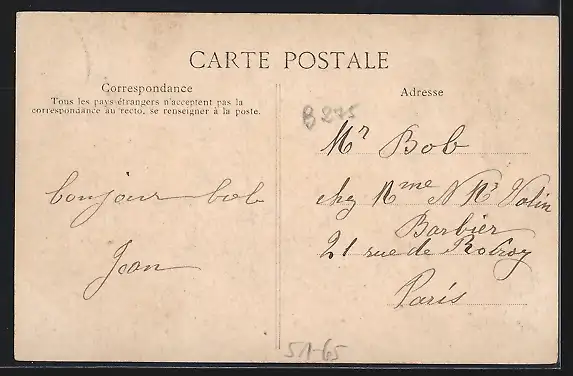 CARTE POSTALE
Correspondance
Tous les pays étrangers n'acceptent pas la
correspondance au recto, se renseigner à la poste.
bonjour bob
Jean
Adresse
B 275
Mr Bob
chez Mme
Barbier
21 rue de Rocroy
Paris
51-65